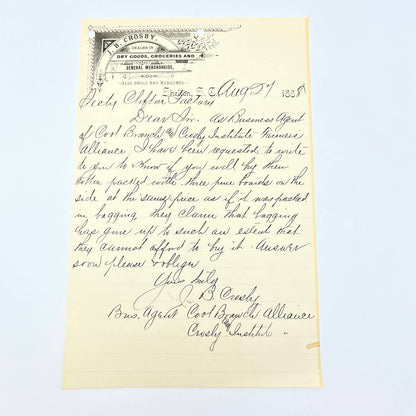 J. B. CROSBY,
DEALER IN
DRY GOODS, GROCERIES AND
GENERAL MERCHANDISE,
ALSO DRUGS AND MEDICINES.
Shelton, S. C., Aug 27 1888
Secty Clifton Factory
Dear Sir. As Business Agent
of Cool Branch & Crosby Institute Farmers
Alliance I have been requested to write
to you to know if you will buy their
cotton packed with three pine boards on the
side at the same price as if it was packed
in bagging. They claim that bagging
has gone up to such an extent that
they cannot afford to buy it. Answer
soon please & oblige
Yours truly
J. B. Crosby
Bus. Agent Cool Branch Alliance
& Crosby Institute "